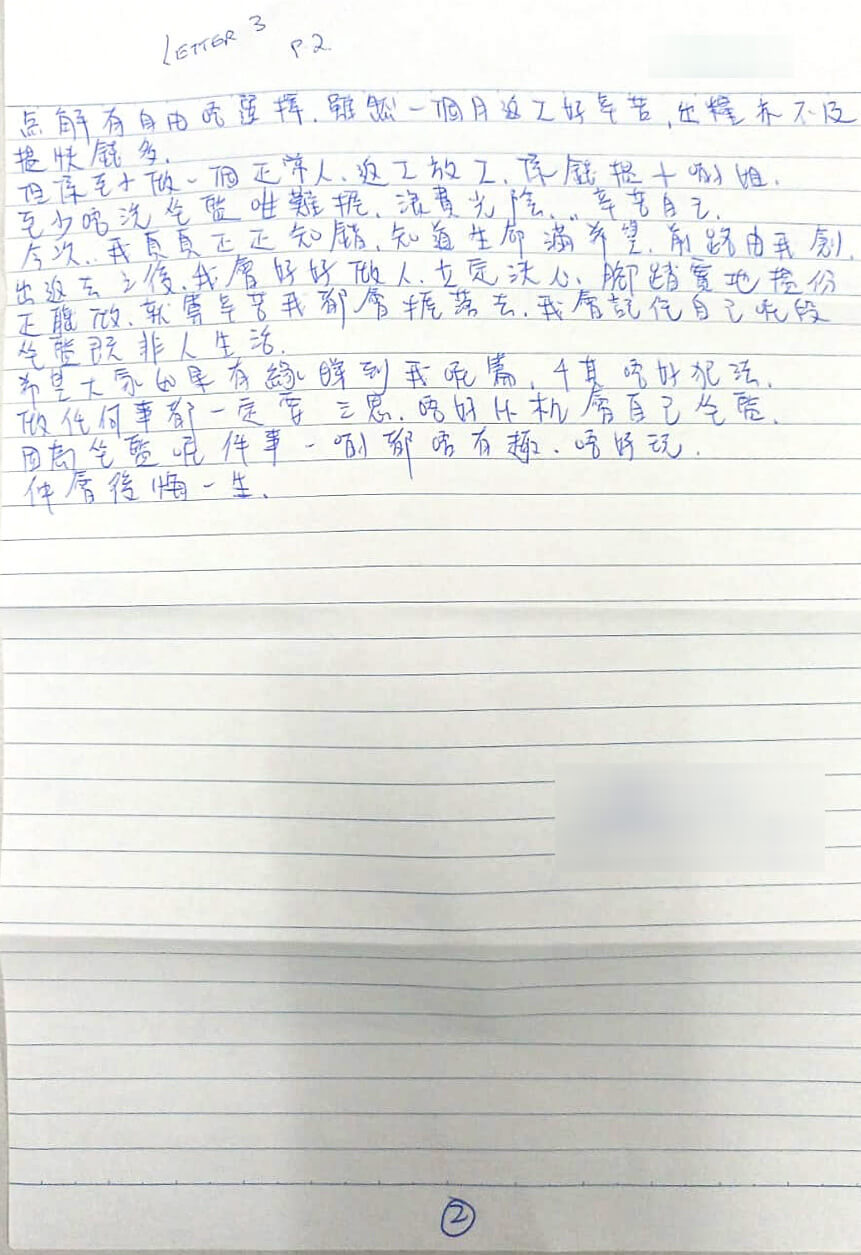 LETTER 3 P.2
点解有自由唔選擇.雖然一個月返工好辛苦,出糧亦不及
搵快錢多.
但係至少做一個正常人.返工放工.係錢搵少啲姐.
至少唔洗坐監咁難捱.浪費光陰...辛苦自己.
今次..我真真正正知錯.知道生命滿希望.前路由我創.
出返去之後.我會好好做人.立定決心.腳踏實地搵份
正職做.就算辛苦我都會捱落去.我會記住自己呢段
坐監既非人生活.
希望大家如果有緣睇到我呢篇.千其唔好犯法.
做任何事都一定要三思.唔好比机會自己坐監.
因為坐監呢件事一啲都唔有趣.唔好玩.
仲會後悔一生.
2